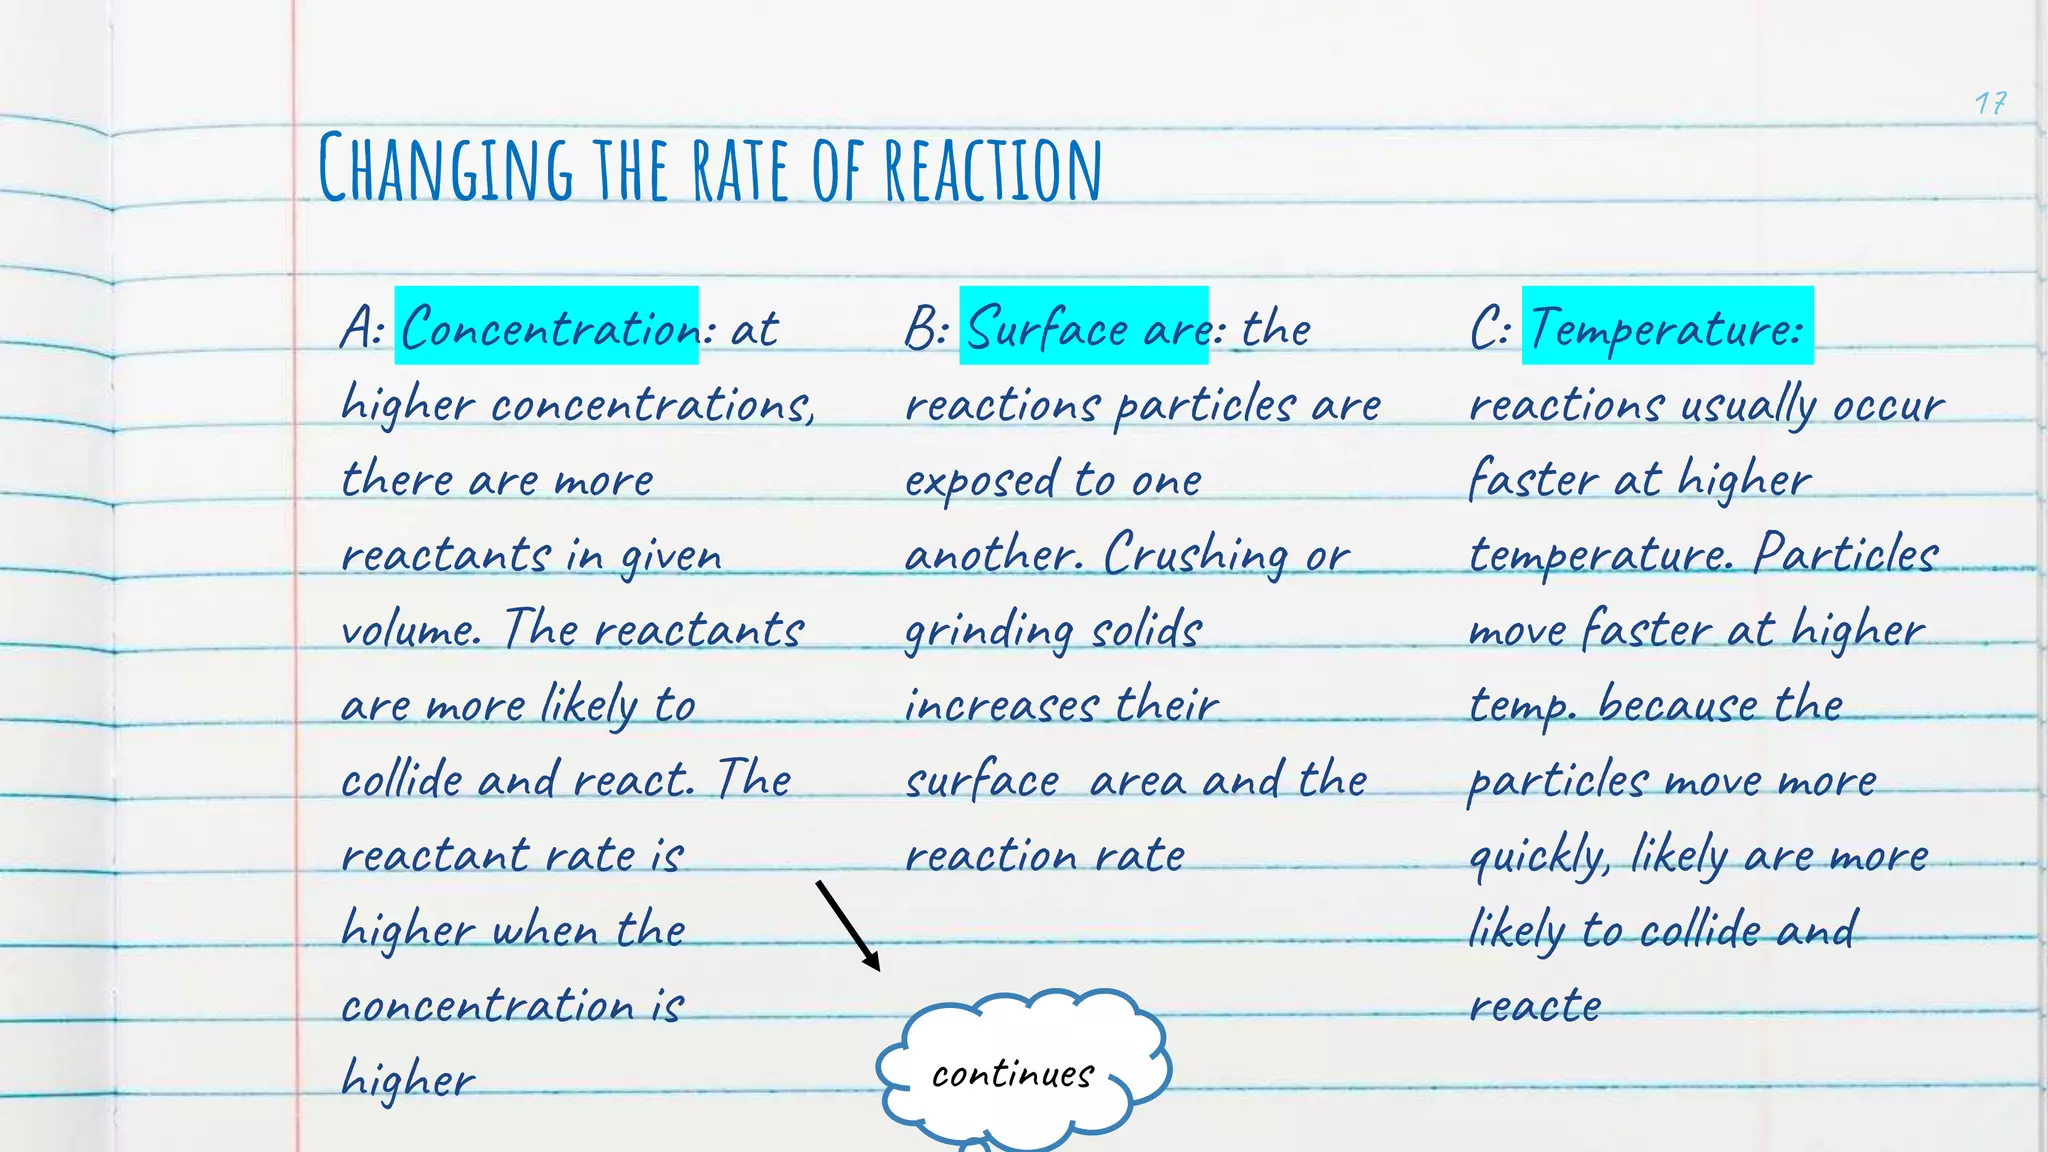 17
Changing the rate of reaction
A: Concentration: at
higher concentrations,
there are more
reactants in given
volume. The reactants
are more likely to
collide and react. The
reactant rate is
higher when the
concentration is
higher
B: Surface are: the
reactions particles are
exposed to one
another. Crushing or
grinding solids
increases their
surface  area and the
reaction rate
C: Temperature:
reactions usually occur
faster at higher
temperature. Particles
move faster at higher
temp. because the
particles move more
quickly, likely are more
likely to collide and
reacte
continues